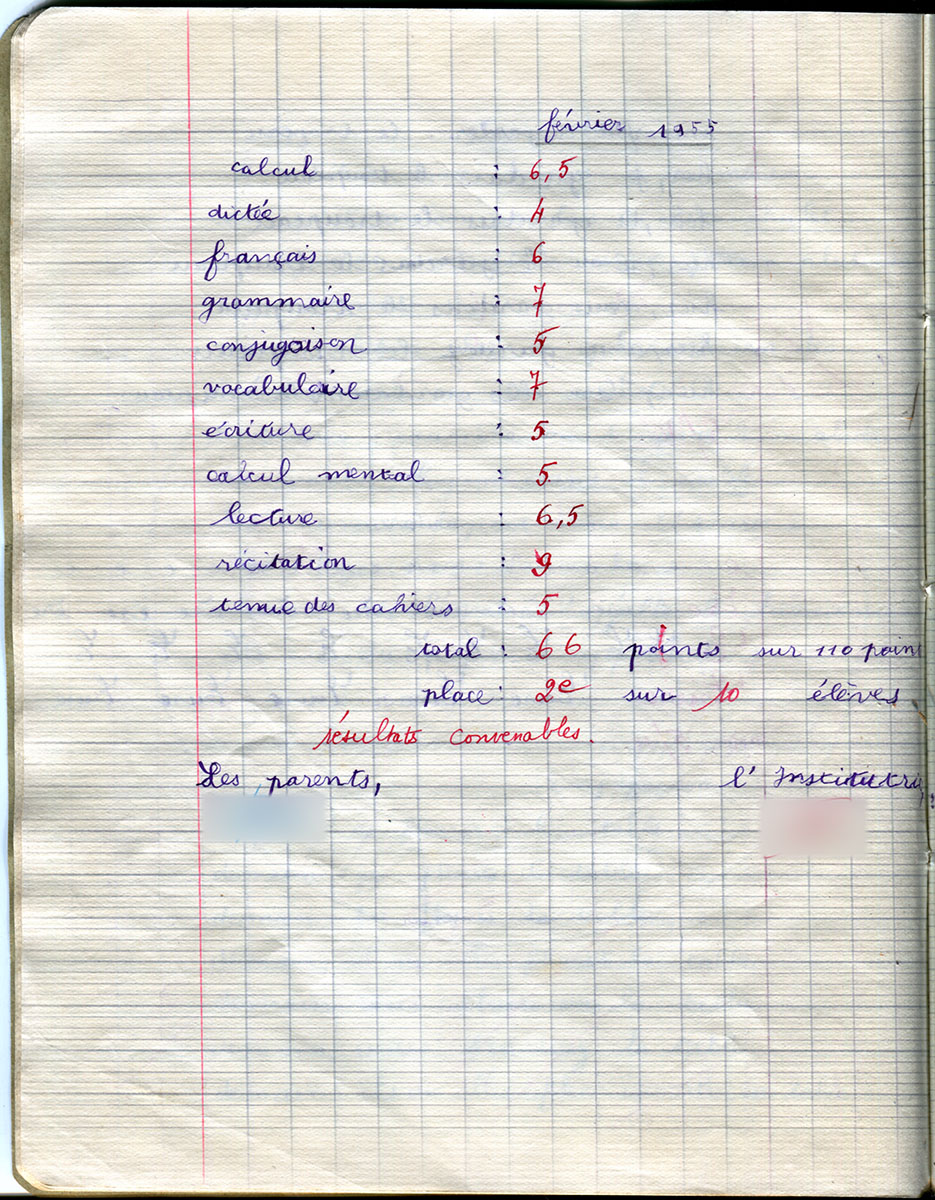 février 1955
calcul : 6,5
dictée : 4
français : 6
grammaire : 7
conjugaison : 5
vocabulaire : 7
écriture : 5
calcul mental : 5
lecture : 6,5
récitation : 9
tenue des cahiers : 5
total : 66 points sur 110 poin
place : 2e sur 10 élèves
résultats convenables.
Les parents, l'Institutri